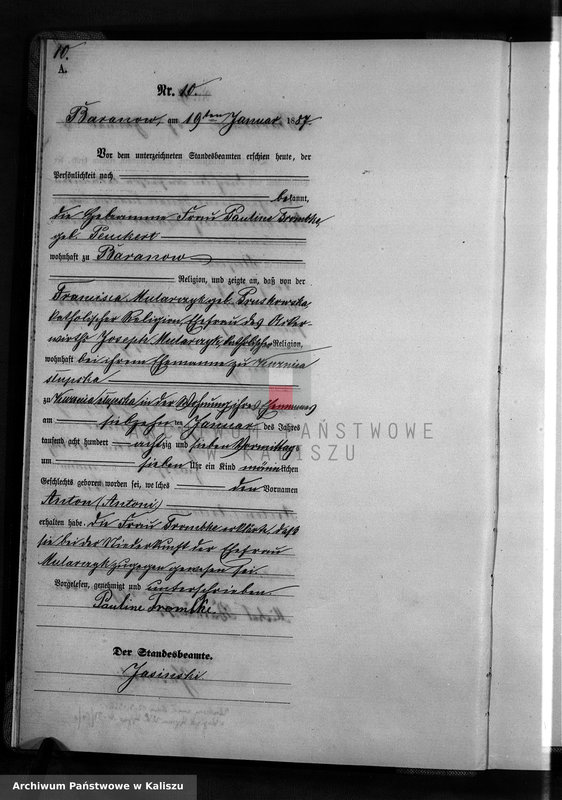 10.
A.
Nr. 10.
Baranow, am 19ten Januar 1887.
Vor dem unterzeichneten Standesbeamten erschien heute, der
Persönlichkeit nach
bekannt,
die Hebeamme Frau Pauline Trombke,
geb. Penckert
wohnhaft zu Baranow
Religion, und zeigte an, daß von der
Franciska Mularczyk geb. Pruskowska
katholischer Religion, Ehefrau des Acker-
wirths Joseph Mularczyk, katholischer Religion,
wohnhaft bei ihrem Ehemanne zu Kuznica
slupska
zu Kuznica slupska in der Wohnung ihres Ehemannes
am siebzehnten Januar des Jahres
tausend acht hundert achtzig und sieben Vormittags
um sieben Uhr ein Kind männlichen
Geschlechts geboren worden sei, welches den Vornamen
Anton (Antoni)
erhalten habe. Die Frau Trombke erklärte, daß
sie bei der Niederkunft der Ehefrau
Mularczyk zugegen gewesen sei.
Vorgelesen, genehmigt und unterschrieben
Pauline Trombke.
Der Standesbeamte.
Jasinski
ARCHIWUM PAŃSTWOWE
W KALISZU
Archiwum Państwowe w Kaliszu